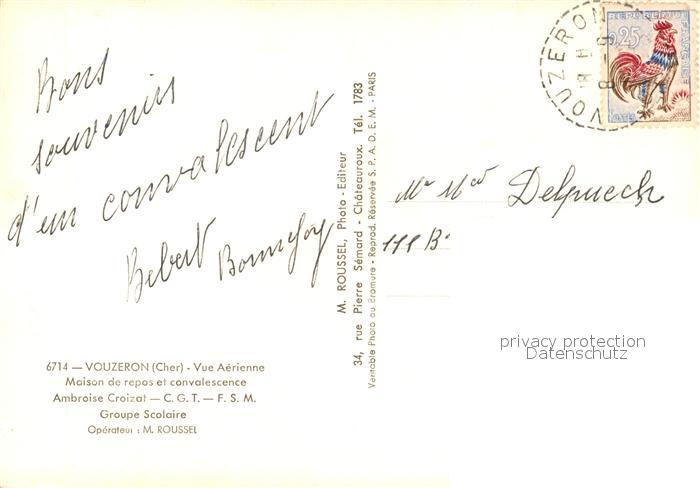 Bons
souvenirs
d'un convalescent
Bebert Bonnefoy
6714 — VOUZERON (Cher) - Vue Aérienne
Maison de repos et convalescence
Ambroise Croizat — C. G. T. — F. S. M.
Groupe Scolaire
Opérateur : M. ROUSSEL
M. ROUSSEL, Photo - Editeur
34, rue Pierre Sémard - Châteauroux. Tél. 1783
Véritable Photo au Bromure - Reprod. Réservée S. P. A. D. E. M. - PARIS
VOUZERON
REPUBLIQUE FRANÇAISE
0,25
Mr Mme Delpuech
111 B
privacy protection
Datenschutz